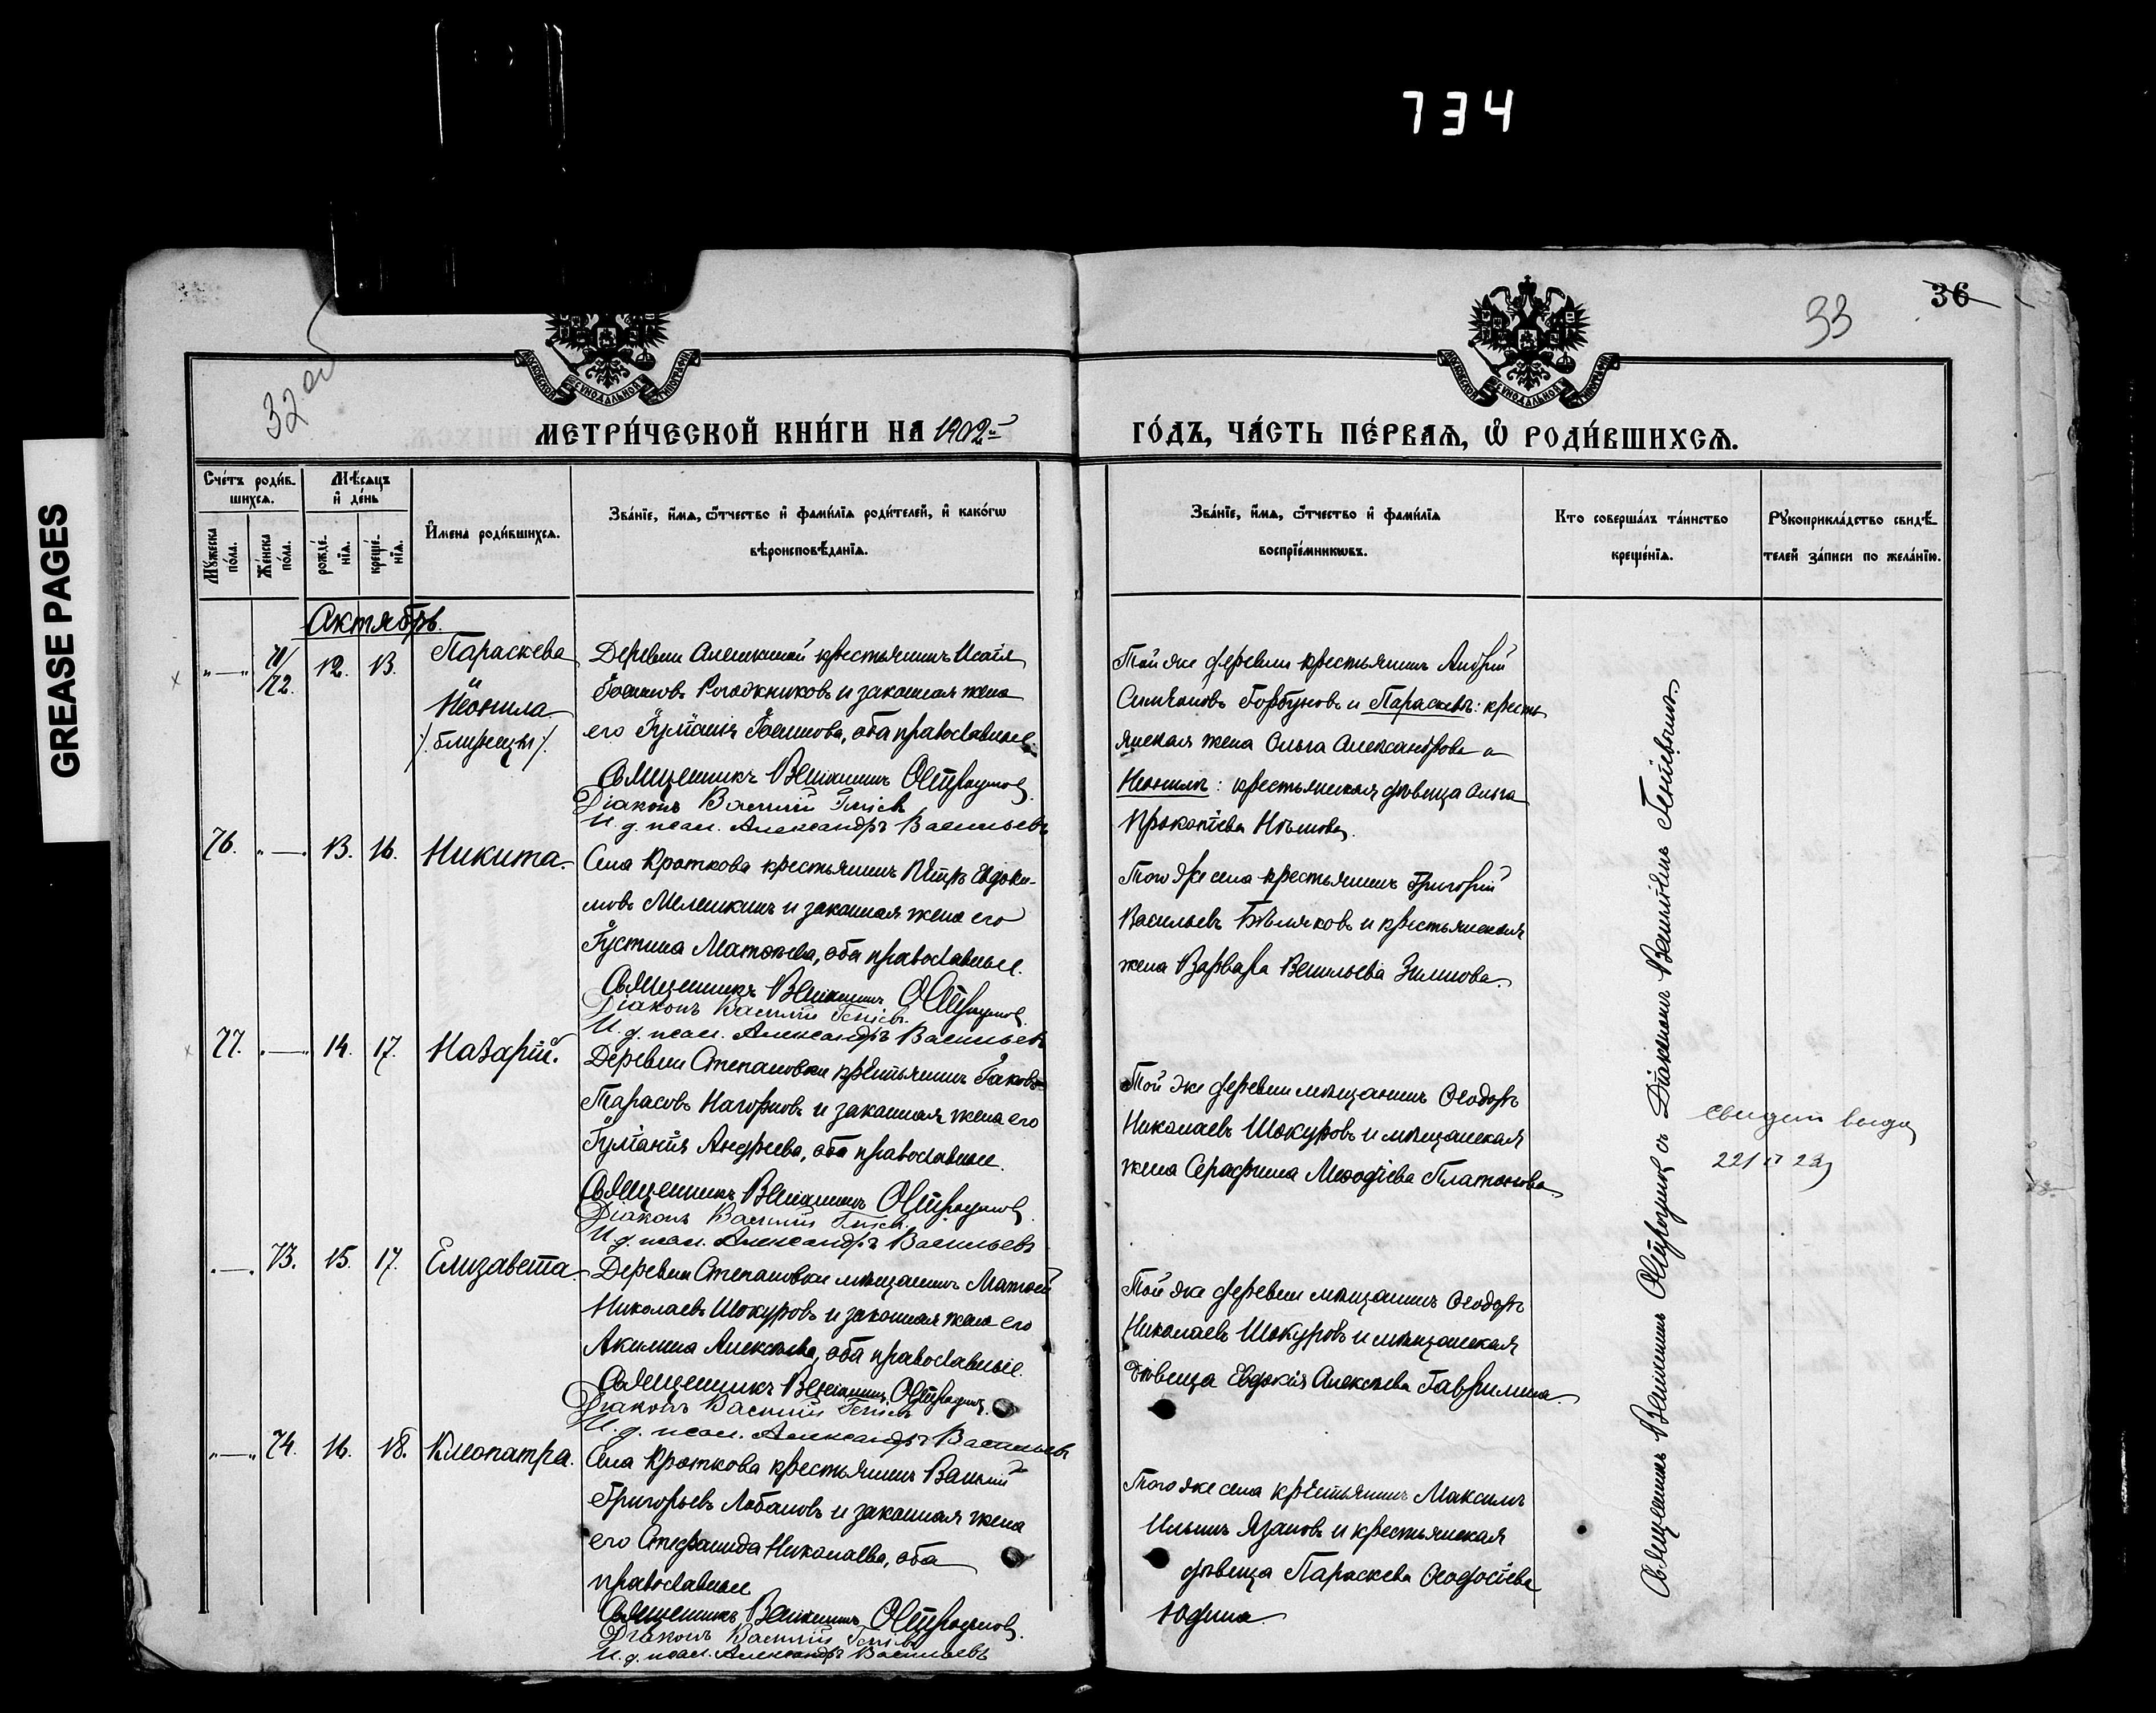 734
GREASE PAGES
32 об
33
36
МЕТРИ́ЧЕСКОЙ КНИ́ГИ НА 1902-й
ГО́ДЪ, ЧА́СТЬ ПЕ́РВАЯ, Ѿ РОДИ́ВШИХСѦ.
Сче́тъ роди́в-
шихсѧ.
Мѣ́сяцъ
и де́нь
Му́жеска
по́ла.
Же́нска
по́ла.
рожде́-
нїѧ.
креще́-
нїѧ.
И҆мена роди́вшихсѧ.
Зва́нїе, и҆́мѧ, ѻ҆́тчество и҆ фами́лїѧ роди́телей, и҆ како́гѡ
вѣроисповѣ́данїѧ.
Зва́нїе, и҆́мѧ, ѻ҆́тчество и҆ фами́лїѧ
воспрїе́мникѡвъ.
Кто соверша́лъ та́инство
креще́нїѧ.
Рꙋкоприкла́дство свидѣ́-
телей за́писи по жела́нїю.
Октябрь.
71/72. 12. 13. Параскева
и
Неонила
/близнецы/.
Деревни Алешкиной крестьянинъ Исаія
Іосифовъ и законная жена
его Іуліанія Іосифова, оба православные.
Священникъ Веніаминъ Остроумов
Діаконъ Василій
И. д. псал. Александръ Васильевъ
Той же деревни крестьянинъ Андрей
Симеоновъ Горбуновъ и Параскевы: кресть
янская жена Ольга Александрова и
Неонилы: крестьянская дѣвица Ольга
Прокопіева
76. 13. 16. Никита.
Села Кроткова крестьянинъ Петръ Евдоки-
мовъ Мелешкинъ и законная жена его
Іустина Матѳеева, оба православные.
Священникъ Веніаминъ Остроумов
Діаконъ Василій
И. д. псал. Александръ Васильевъ
Того же села крестьянинъ Григорій
Васильевъ Бѣляковъ и крестьянская
жена Варвара Васильева Зимнова.
77. 14. 17. Назарій.
Деревни Степановки крестьянинъ Іаковъ
Тарасовъ Нагорновъ и законная жена его
Іуліанія Андреева, оба православные.
Священникъ Веніаминъ Остроумов
Діаконъ Василій
И. д. псал. Александръ Васильевъ
Той же деревни мѣщанинъ Ѳеодоръ
Николаевъ Шокуровъ и мѣщанская
жена Серафима Меѳодіева Платонова.
73. 15. 17. Елизавета.
Деревни Степановки мѣщанинъ Матѳей
Николаевъ Шокуровъ и законная жена его
Акилина Алексѣева, оба православные.
Священникъ Веніаминъ Остроумов
Діаконъ Василій
И. д. псал. Александръ Васильевъ
Той же деревни мѣщанинъ Ѳеодоръ
Николаевъ Шокуровъ и мѣщанская
дѣвица Евдокія Алексѣева Гаврилина.
74. 16. 18. Клеопатра.
Села Кроткова крестьянинъ Василій
Григорьевъ Лобановъ и законная жена
его Стефанида Николаева, оба
православные
Священникъ Веніаминъ Остроумов.
Діаконъ Василій
И. д. псал. Александръ Васильевъ
Того же села крестьянинъ Максимъ
Ильинъ Язановъ и крестьянская
дѣвица Параскева Ѳеодосіева
Юдина.
Священникъ Веніаминъ Остроумовъ съ Діакономъ Василіемъ